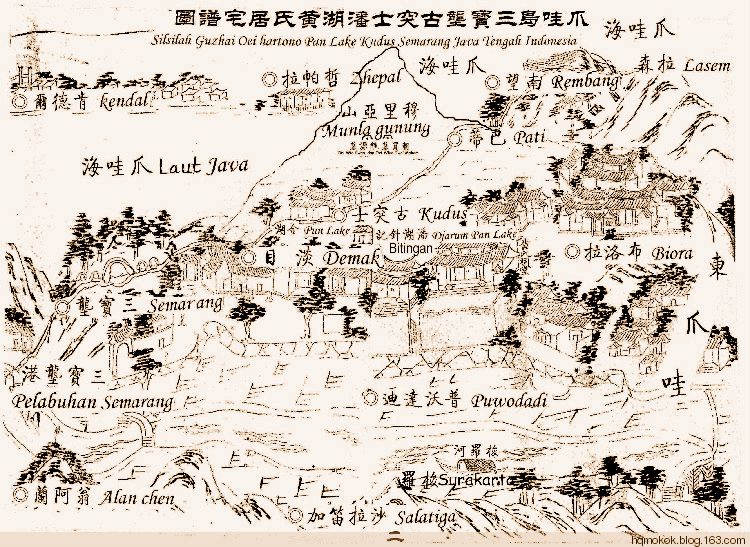 爪哇島三寶龔古突士潘湖黃氏居宅譜圖
Silsilah Guzhai Oei hartono Pan Lake Kudus Semarang Java Tengah Indonesia
爪哇海
爪哇海
哲帕拉 Zhepal
南望 Rembang
拉森 Lasem
肯德爾 kendal
穆里亞山
Munla gunung
巴蒂 Pati
爪哇海 Laut Java
古突士 Kudus
Pan Lake
潘湖針記 Djarum Pan Lake
Bitingan
淡目 Demak
布洛拉 Biora
東爪哇
三寶壟 Semarang
三寶壟港
Pelabuhan Semarang
普沃達迪 Puwodadi
梭羅河
梭羅 Surakanta
翁阿蘭 Alan chen
沙拉笛加 Salatiga
二
hqmokok.blog.163.com